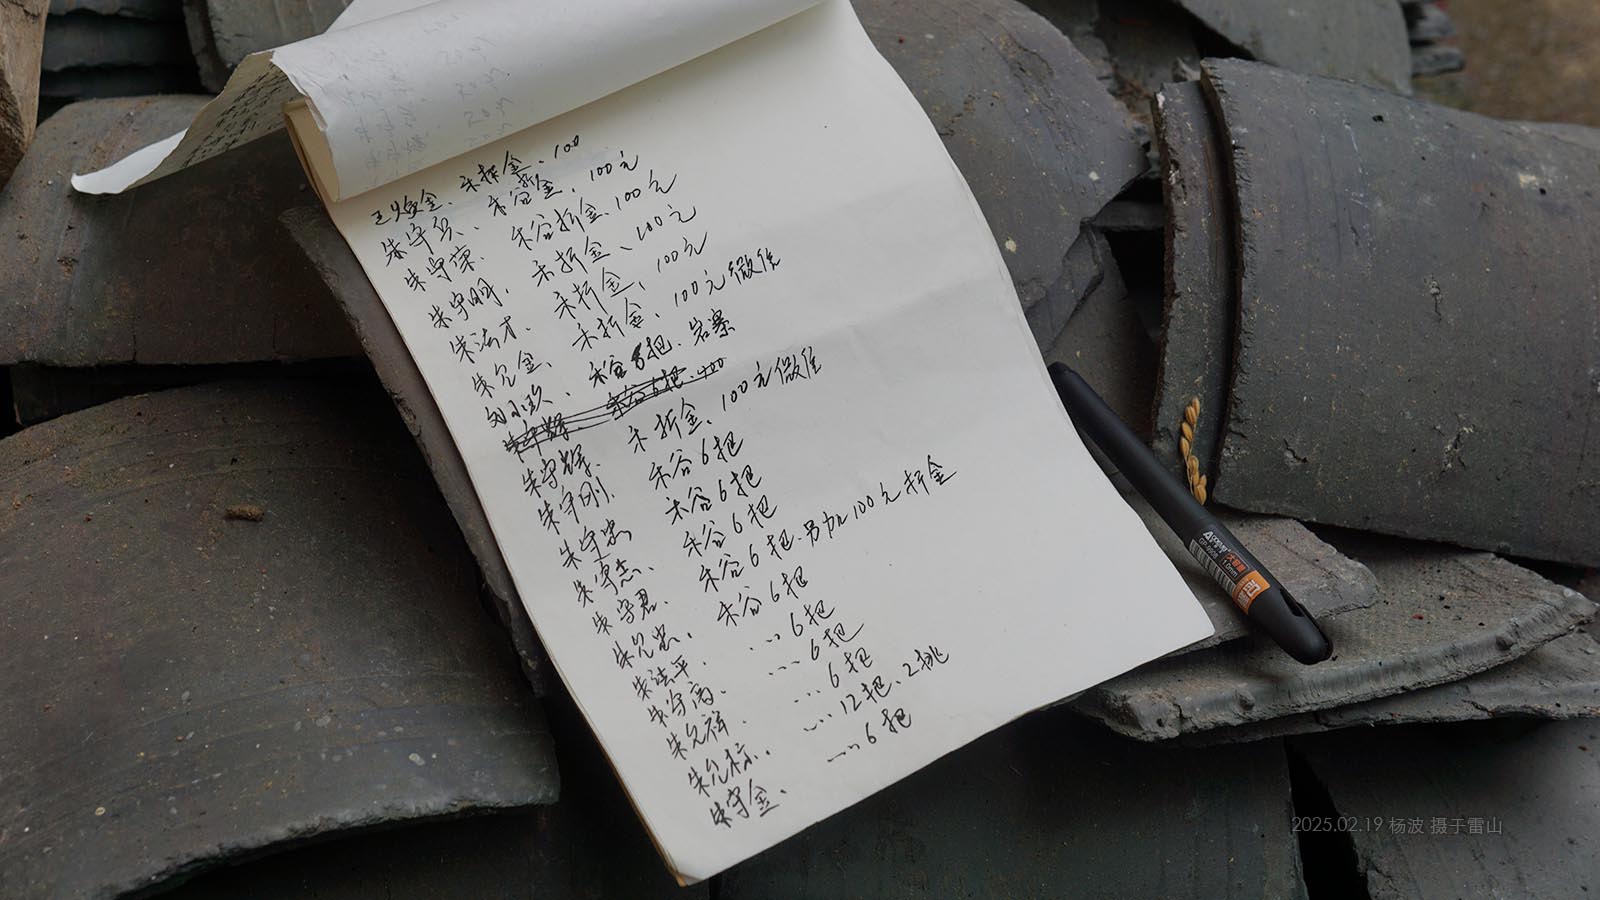 王焕金、禾折金、100
朱守贤、禾谷折金、100元
朱守荣、禾谷折金、100元
朱守明、禾折金、100元
朱法才、禾折金、100元
朱允金、禾折金、100元 微信
禾谷6把、岩寨
禾谷6把、400
朱守辉、禾折金、100元 微信
朱守刚、禾谷6把
朱守忠、禾谷6把
朱守杰、禾谷6把
朱守君、禾谷6把、另加100元折金
朱允忠、禾谷6把
朱法平、……6把
朱守高、……6把
朱允祥、……6把
朱允标、……12把、2挑
朱守金、……6把
GP-9958
1.0mm
大容量
2025.02.19 杨波 摄于雷山